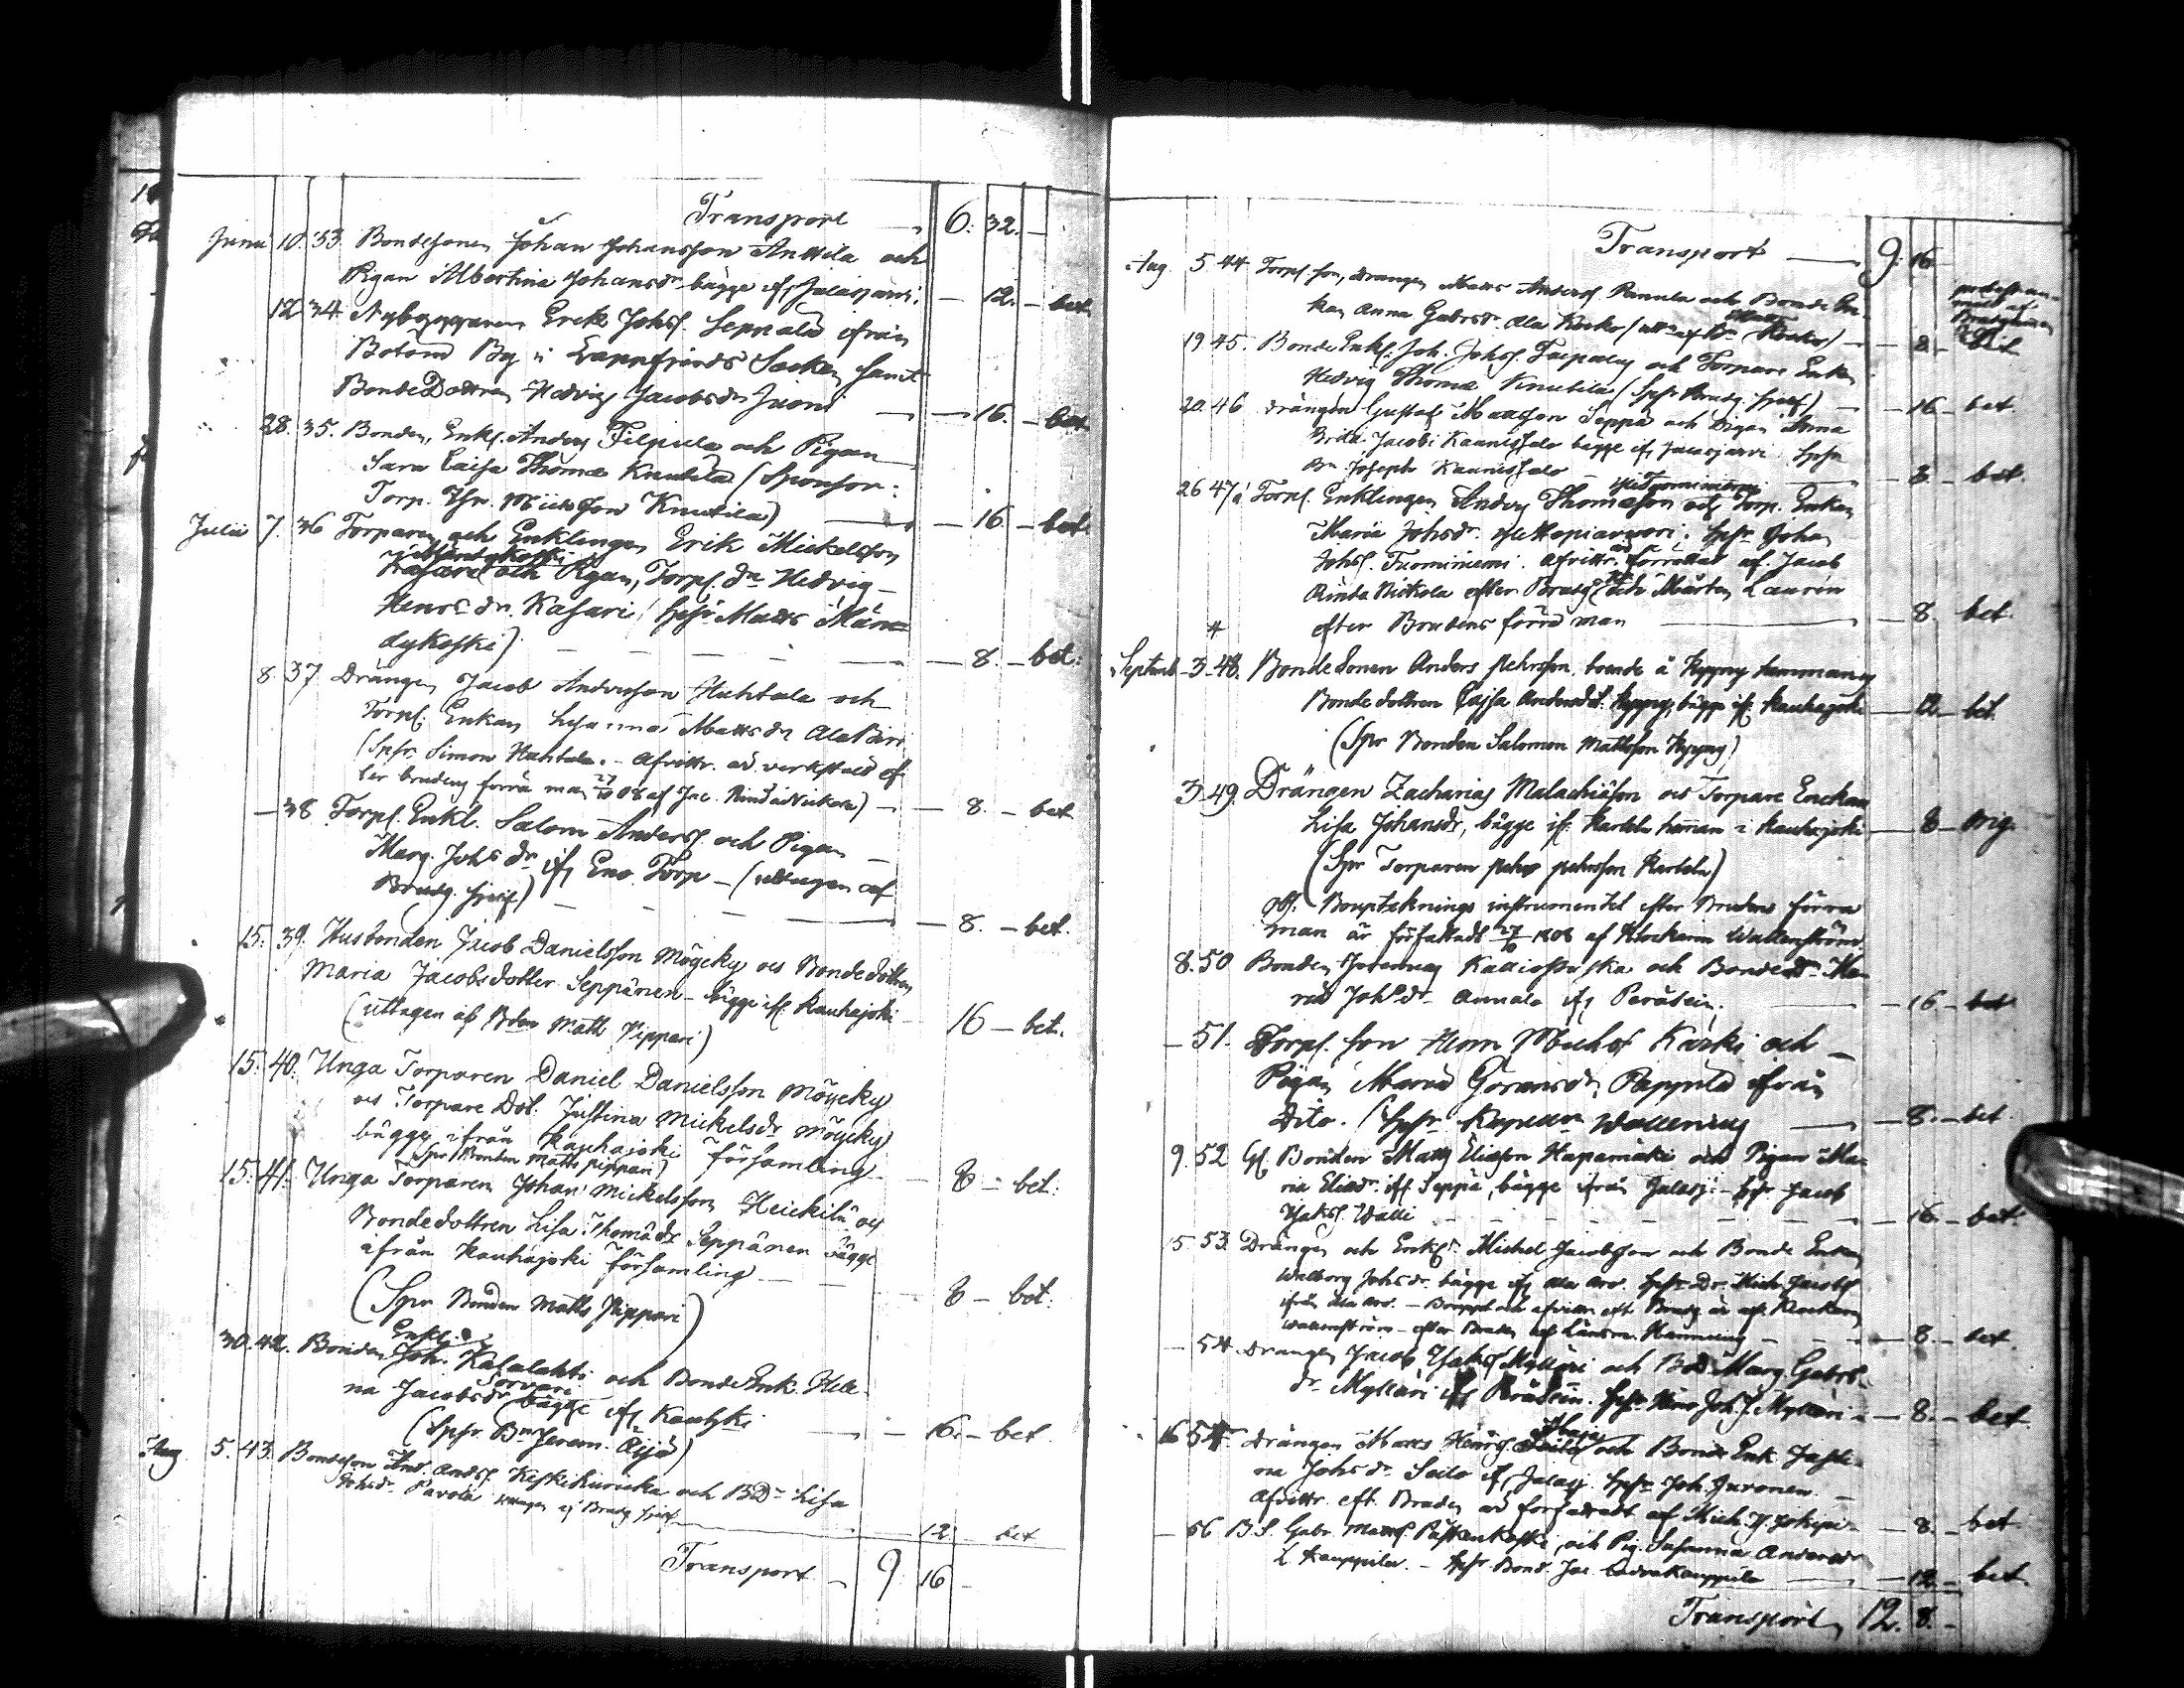 Transport 6. 32.
Junii 10. 33. Bondesonen Johan Johansson Anttila och
Pigan Albertina Johansdr bägge ifr Jalasjärvi. 12. bet
12 34. Nybyggaren Erik Johss. Seppälä ifrån
Botom By i Lappfjerds Socken samt
Bonde Dottren Hedvig Jacobsdr Juoni 16. bet
28. 35. Bonden, Enkl. Anders Filpula och Pigan
Sara Caisa Thomæ Knuutila (Sponsor:
Torp. Michelsson Knuutila) 16 bet
Julii 7. 36 Torparen och Enklingen Erik Mickelsson
Mändykoski
Kasari och Pigan, Torps. dr Hedvig
Henrs dr. Kasari (Spsr Matts Män=
dykoski) 8. bet.
8. 37 Drängen Jacob Andersson Huhtala och
Torps. Enkan Susanna Mattsdr Ala
(Spsr. Simon Huhtala. Afvittr. ad verkstäld ef=
ter brudens förra man 27/10 08 af Jac. Rinda Nickola) 8. bet
38 Torps. Enkl. Salom Anderss. och Pigan
Marg. Johs dr ifr Eno Torp (uttagen af
Brudg. sjelf) 8. bet.
15. 39. Husbonden Jacob Danielsson Möycky och Bondedottren
Maria Jacobsdotter Seppänen bägge ifr. Kauhajoki
(uttagen af Bden Matts Pippari) 16 bet.
15. 40. Unga Torparen Daniel Danielsson Möycky
och Torpare Dot. Justina Mickelsdr Möycky
bägge ifrån Kauhajoki Församling 8 bet.
(Spr Bonden Matts Pippari)
15. 41. Unga Torparen Johan Mickelsson Heickilä och
Bondedottren Lisa Thomädr Seppänen bägge
ifrån Kauhajoki församling 8 bet.
(Spr Bonden Matts Pippari)
Enkl.
30. 42. Bonden Joh. Kasalahti och Bonde Enk. Hele=
Torvari
na Jacobsdr bägge ifr Kauhjki 16. bet
(Spsr. Bn Jerem. Äijö)
Aug 5. 43. Bondeson And. Ands. Keskikuricka och BDr Lisa
Johsdr Pavola uttagen af Brudg sjelf 12 bet
Transport 9. 16
Transport 9. 16
Aug 5 44 Torps. son, drängen Matts Anderss. Pannula och Bonde En=
kan Anna Gabrsdr. Ala Kocko 8. bet
19 45. Bonde Enkl. Joh. Johss. Taipalus och Torpare Enkan
Hedvig Thomæ Knuutila (Spsr Brudg. sjelf) 16 bet.
20. 46 drängen Gustaf Mattsson Seppä och Pigan Anna
Brita Jacobi Kaunissalo bägge ifr Jalasjärvi Spsr
Bn. Joseph Kaunissalo 8 bet.
Tuominiemi
26 47 Torps. Enklingen Anders Thomæson och Torp. Enkan
Maria Johsdr. Spsr Johan
Johss. Tuominiemi. Afvittr. ad förrättad af Jacob
Rinda Nickola efter Brudg. och Mårten Laurén
efter Brudens förra man 8. bet.
Septemb 3 48. Bonde Sonen Anders Pehrsson boende å Kyyny hemman och
Bonde dottren Cajsa Andersdr. Kyyny, bägge ifr. Kauhajoki 12. bet.
(Spr Bonden Salomon Mattsson Kyyny)
3. 49. Drängen Zacharias Malachiäson och Torpare Enckan
Lisa Johansdr, bägge ifr. Karhela hemman i Kauhajoki 8 Orig.
(Spr Torparen Pehr Pehrsson Karhela)
obs. Bouptecknings instrumentet efter Brudens förra
man är författadt 27/10 1808 af Klockaren Wallenström.
8. 50 Bonden Jeremias Kalliokoski och Bondedr. Ma=
ria Johsdr. Annala ifr Peräsein. 16. bet
51. Torps. son Herm Michs. Karki och
Pigan Maria Göransdr, Pappila ifrån
Dito. (Spsr. Kapellan Wallenius 8. bet
9. 52 Gl. Bonden Matts Eliæson Hapamäki och Pigan Ma=
ria Eliædr. ifr Seppä, bägge ifrån Jalasj. Spsr Jacob
Isaks. Walli 16. bet.
15. 53. Drängen och Enkl. Michel Jacobsson och Bonde Enkan
Walborg Johsdr. bägge ifr Ala Spsr. Dr. Mich. Jacobss
ifrån Ala Bouppt och afvittr. eft. Brudg. är af Klockaren
Wallenström efter Bruden af Länsm. 8. bet.
54. Drängen Jacob Isakss Myllari och BdDr Marg. Gabrs=
dr. Myllari ifr Peräsein. Spsr. Joh. J. Myllari 8. bet
16 54 Drängen Matts Henrs. och Bonde Enk. Justi=
na Johsdr. Seilo ifr Jalasj. Spsr Joh. Juronen.
Afvittr. eft. Bruden ad författadt af Mich. 8. bet
56 B.S. Gabr. Matts. och Pig. Susanna Andersdr
L Kauppila. Spsr. Bond. Jac. Kauppila 12. bet.
Transport 12. 8.